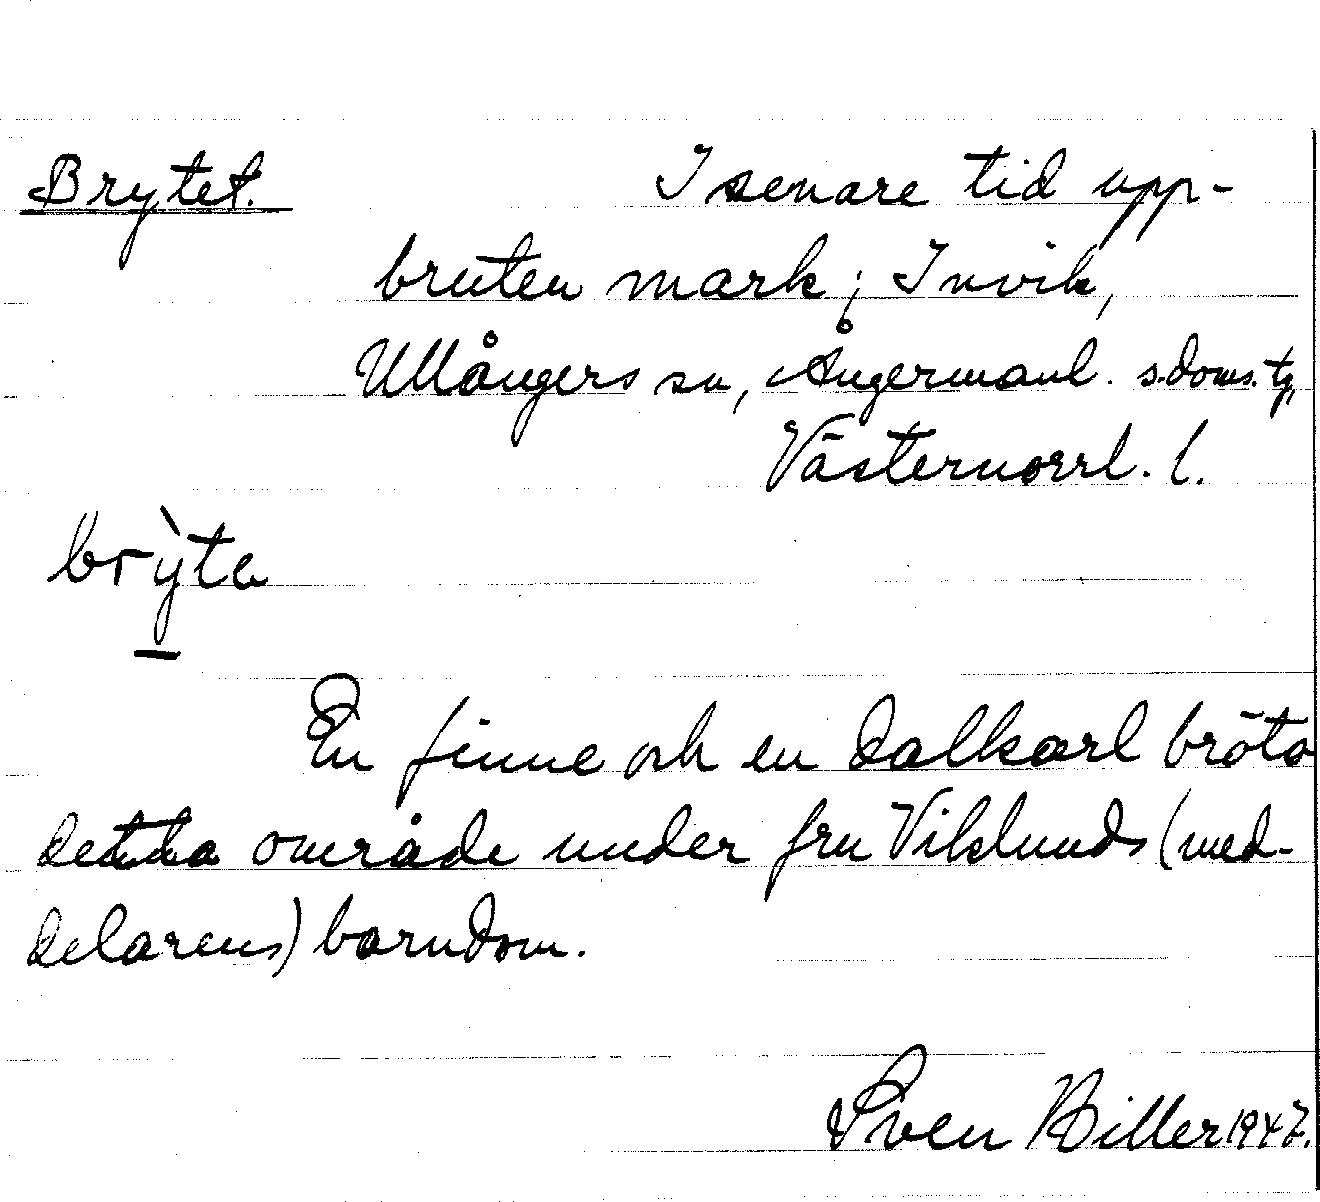 Brytet. I senare tid upp-
bruten mark; Invik,
Ullångers sn, Ångermanl. s. doms. tg,
Västernorrl. l.
brỳta
En finne och en dalkarl bröto
detta område under fru Viklunds (med-
delarens) barndom.
Sven Biller 1947.